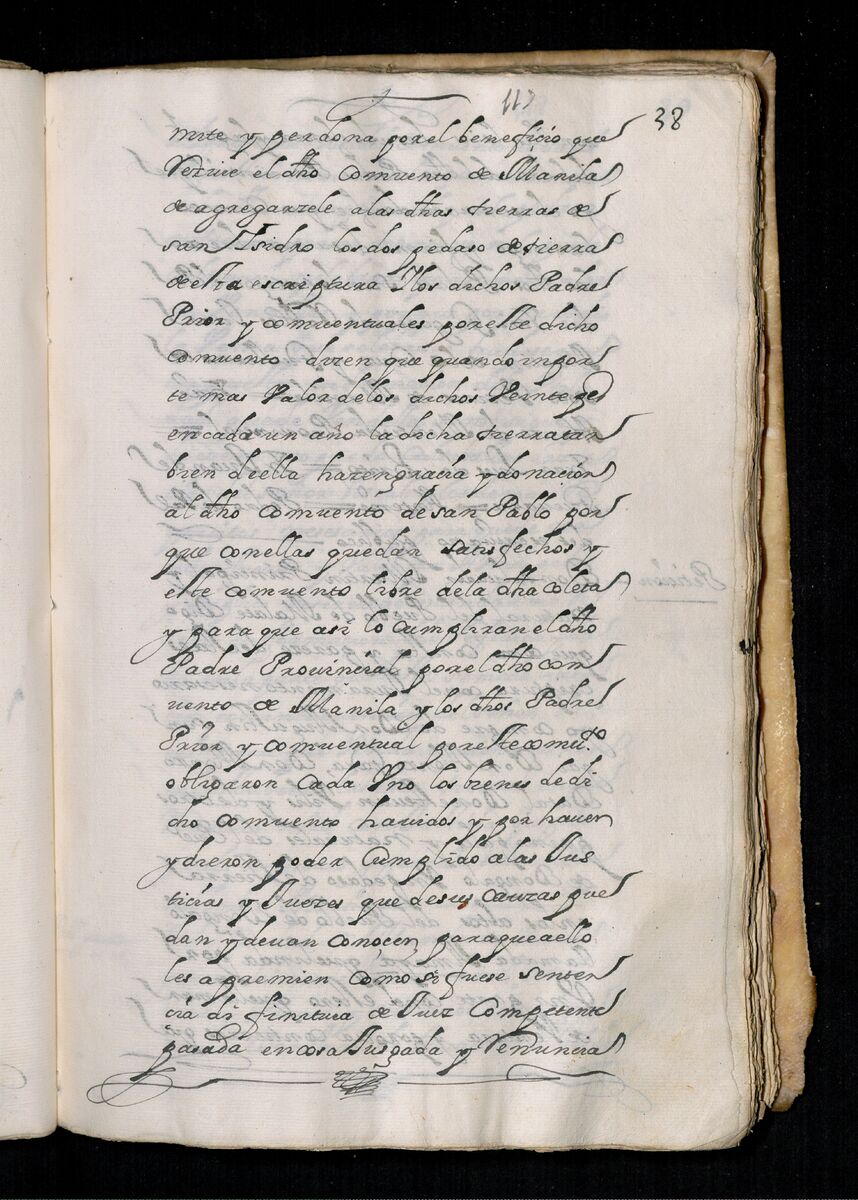 117
38
mite y perdona por el beneficio que
Reziue el dho comuento de Manila
de agregarzele a las dhas tierras de
san Isidro los dos pedaso de tierra
de esta escriptura Ylos dichos Padre
Prior y comuentuales por este dicho
comuento dizen que quando inpor
te mas Valor de los dichos Veinte pes
en cada un año la dicha tierra tan
bien de ella hazen gracia y donacion
al dho comuento de san Pablo por
que con ellas quedan satisfechos y
este comuento libre de la dha coleta
y para que asi lo cumpliran el dho
Padre Provincial por el dho com
uento de Manila y los dhos Padre
Prior y comuentual por este comu.to
obligaron Cada Vno los bienes de di
cho comuento hauidos y por hauer
y dieron poder Cumplido a las Jus
ticias y Juezes que de sus cauzas pue
dan y deuan conoçer para que a ello
les apremien como si fuese senten
cia difinituia de Juez Competente
pasada en cosa Jusgada y Renuncia